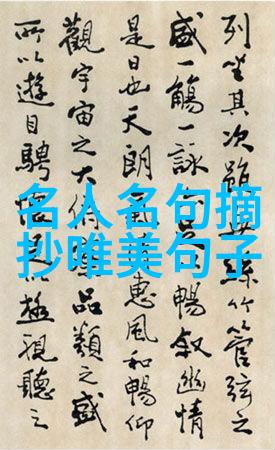 列坐其次雖無絲竹管弦之
盛一觴一詠暢敘幽情
是日也天朗氣惠風和暢仰
觀宇宙之大俯品類之盛
所以遊目騁足以極視聽之
名人名句摘
抄唯美句子